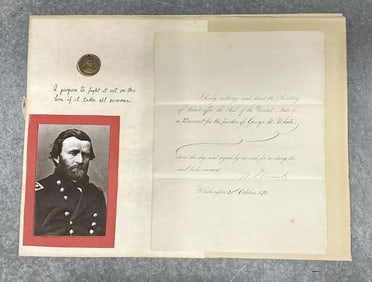 I propose to fight it out on this
line if it takes all summer.
I hereby authorize and direct the Secretary
of State to affix the Seal of the United States to
a Warrant for the pardon of George W. White,
dated this day and signed by me and for so doing this
shall be his warrant.
U. S. Grant
Washington October